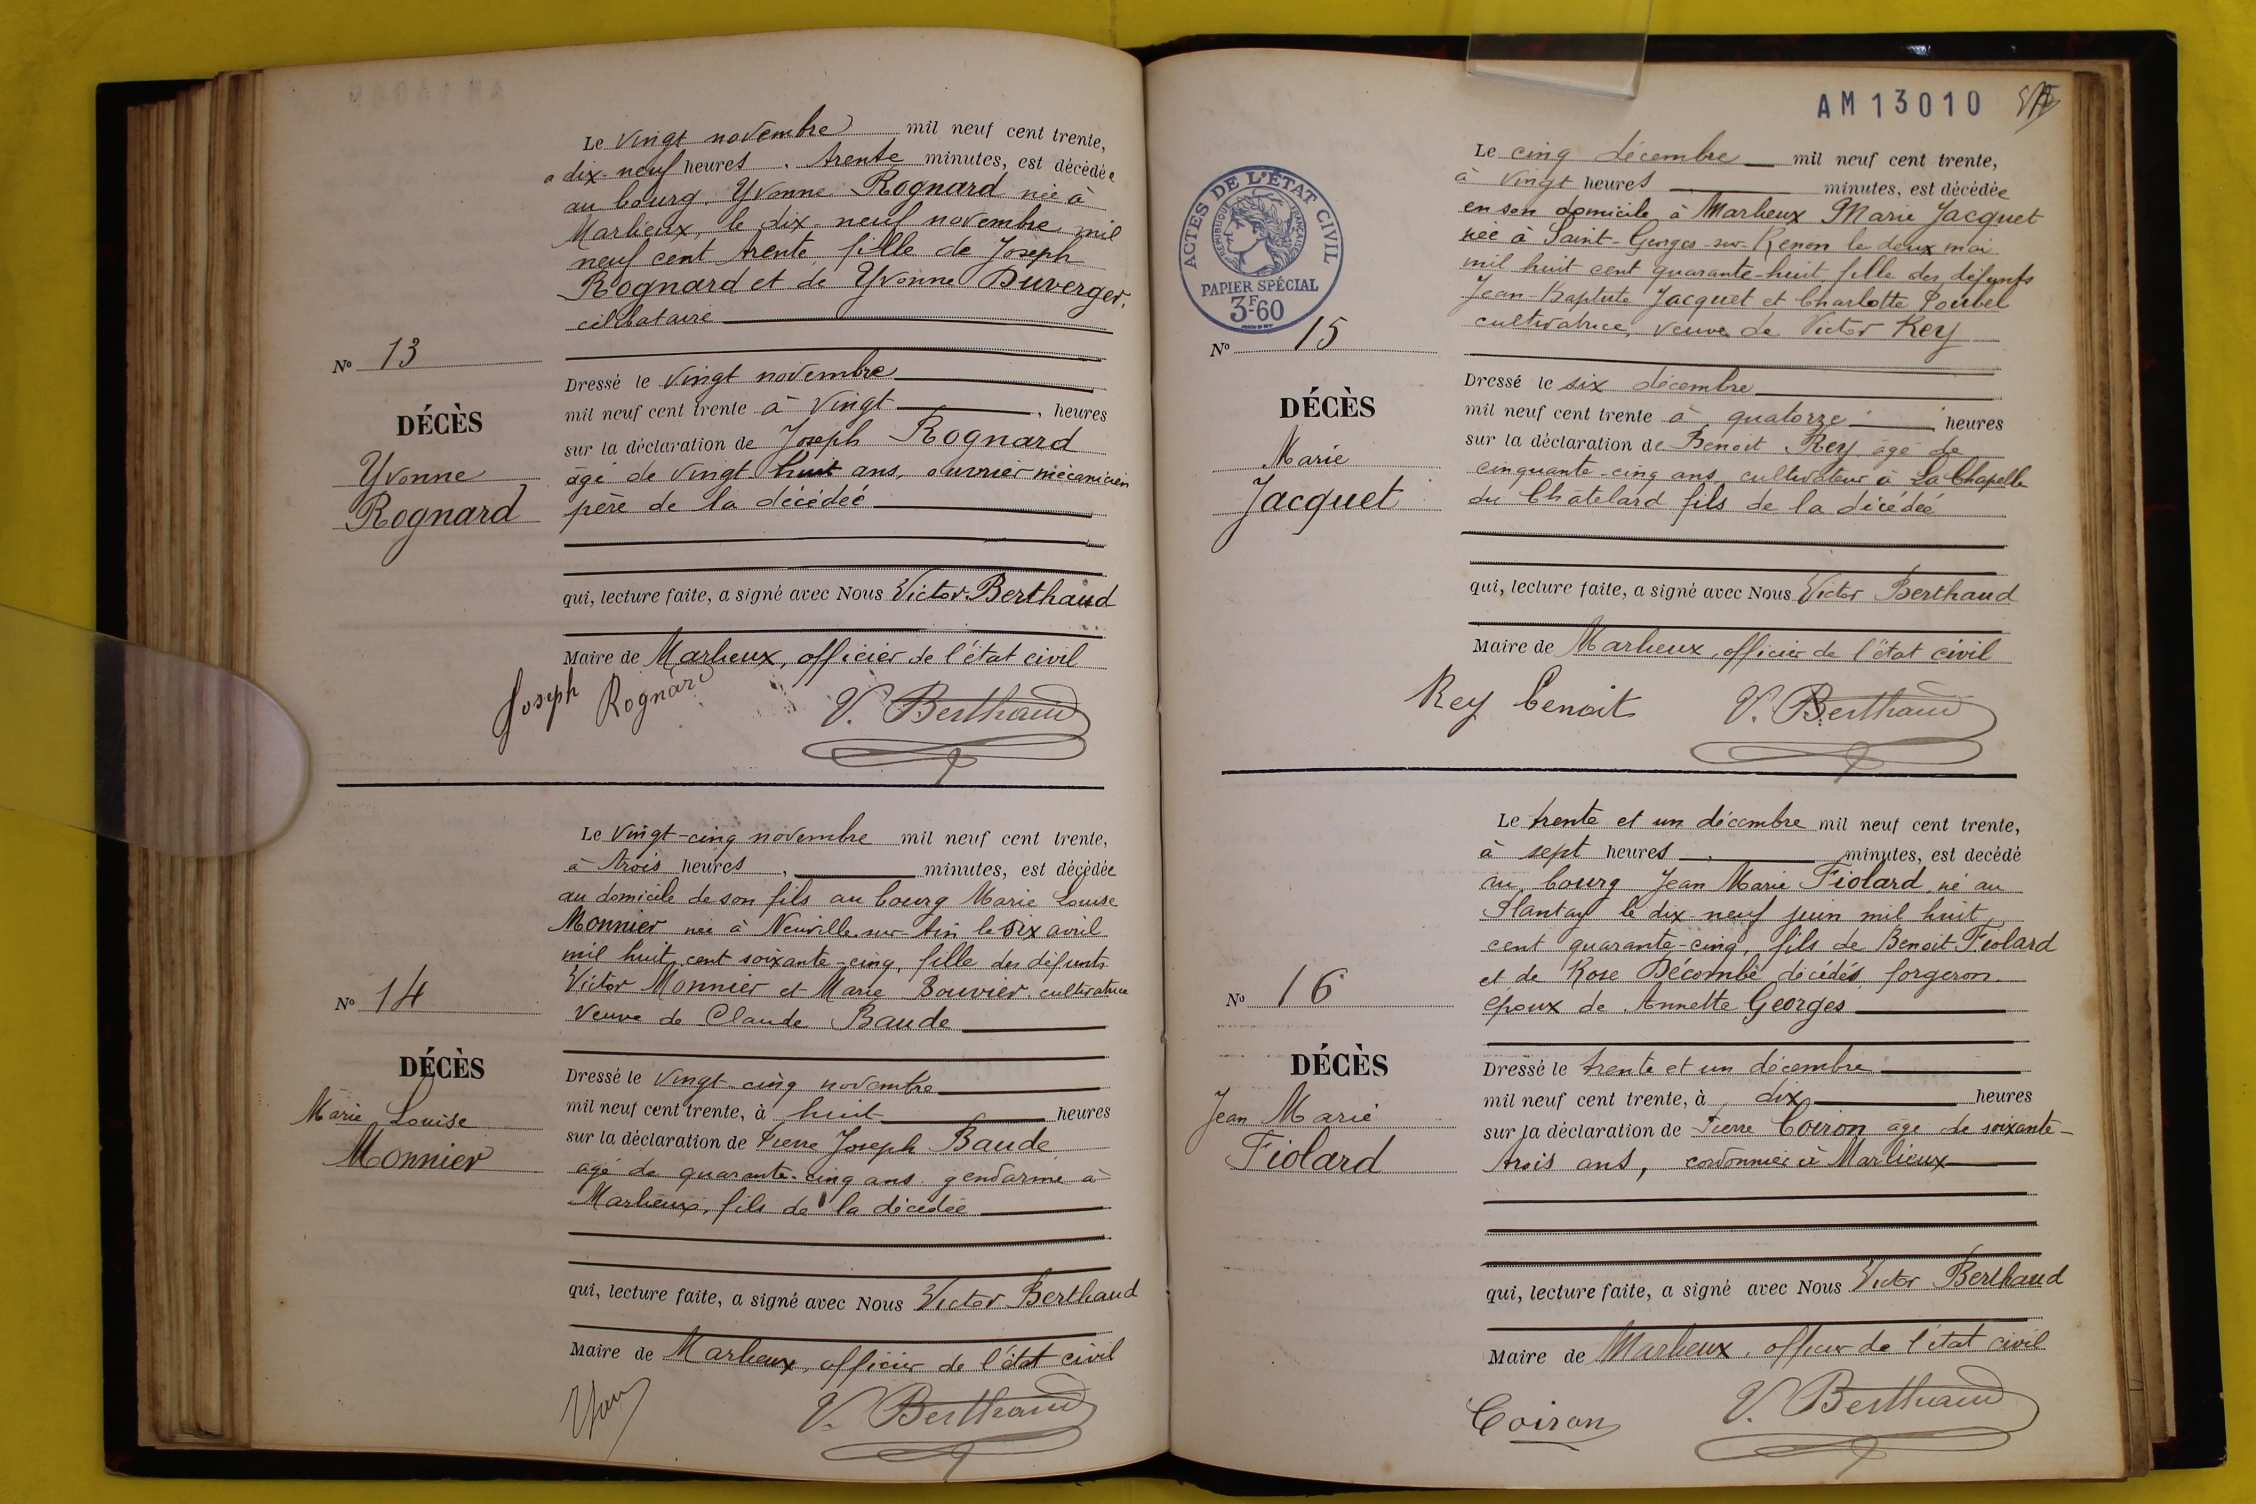 Le vingt novembre mil neuf cent trente,
à dix-neuf heures, trente minutes, est décédée
au bourg, Yvonne Rognard née à
Marlieux, le dix-neuf novembre mil
neuf cent trente, fille de Joseph
Rognard et de Yvonne Duverger,
célibataire
No 13
DÉCÈS
Yvonne
Rognard
Dressé le vingt novembre
mil neuf cent trente à vingt, heures
sur la déclaration de Joseph Rognard
âgé de vingt huit ans, ouvrier mécanicien
père de la décédée
qui, lecture faite, a signé avec Nous Victor Berthaud
Maire de Marlieux, officier de l'état civil
Joseph Rognard V. Berthaud
Le vingt-cinq novembre mil neuf cent trente,
à trois heures, minutes, est décédée
au domicile de son fils au bourg Marie Louise
Monnier née à Neuville-sur-Ain le avril
mil huit cent soixante-cinq, fille des défunts
Victor Monnier et Marie Bouvier, cultivatrice
Veuve de Claude Baude
No 14
DÉCÈS
Marie Louise
Monnier
Dressé le vingt-cinq novembre
mil neuf cent trente, à huit heures
sur la déclaration de Pierre Joseph Baude
âgé de quarante-cinq ans gendarme à
Marlieux, fils de la décédée
qui, lecture faite, a signé avec Nous Victor Berthaud
Maire de Marlieux, officier de l'état civil
V. Berthaud
AM13010
ACTES DE L'ÉTAT CIVIL
RÉPUBLIQUE FRANÇAISE
PAPIER SPÉCIAL
3F60
Le cinq décembre mil neuf cent trente,
à vingt heures minutes, est décédée
en son domicile à Marlieux Marie Jacquet
née à Saint-Georges-sur-Renon le deux mai
mil huit cent quarante-huit, fille des défunts
Jean-Baptiste Jacquet et Charlotte
cultivatrice, veuve de Victor Rey
No 15
DÉCÈS
Marie
Jacquet
Dressé le six décembre
mil neuf cent trente à quatorze heures
sur la déclaration de Benoit Rey âgé de
cinquante-cinq ans, cultivateur à La Chapelle
du Châtelard fils de la décédée
qui, lecture faite, a signé avec Nous Victor Berthaud
Maire de Marlieux, officier de l'état civil
Rey benoit V. Berthaud
Le trente et un décembre mil neuf cent trente,
à sept heures, minutes, est decédé
au bourg Jean Marie Fiolard, né au
Plantay le dix-neuf juin mil huit
cent quarante-cinq, fils de Benoit Fiolard
et de Rose Décombe décédés forgeron
époux de Annette Georges
No 16
DÉCÈS
Jean Marie
Fiolard
Dressé le trente et un décembre
mil neuf cent trente, à dix heures
sur la déclaration de Pierre Coiron âgé de soixante-
trois ans, cordonnier à Marlieux
qui, lecture faite, a signé avec Nous Victor Berthaud
Maire de Marlieux, officier de l'état civil
Coiron V. Berthaud